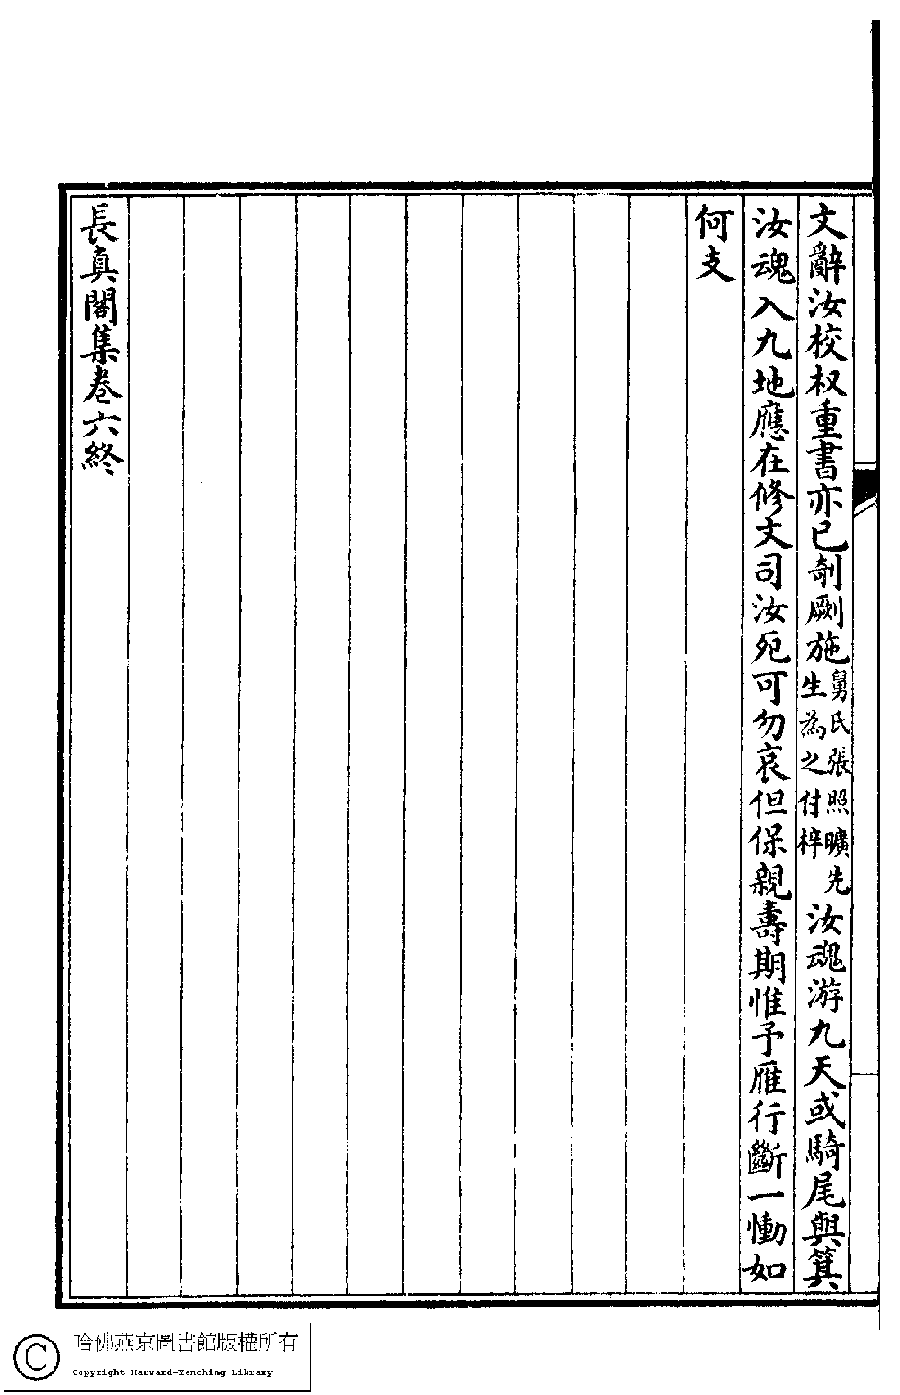 文辭汝校权重書亦已剞劂施舅氏張照曠先
生為之付梓汝魂游九天或騎尾與箕
汝魂入九地應在修文司汝死可勿哀但保親壽期惟予雁行斷一慟如
何支
長真閣集卷六終
哈佛燕京圖書館版權所有
Copyright Harvard-Yenching Library